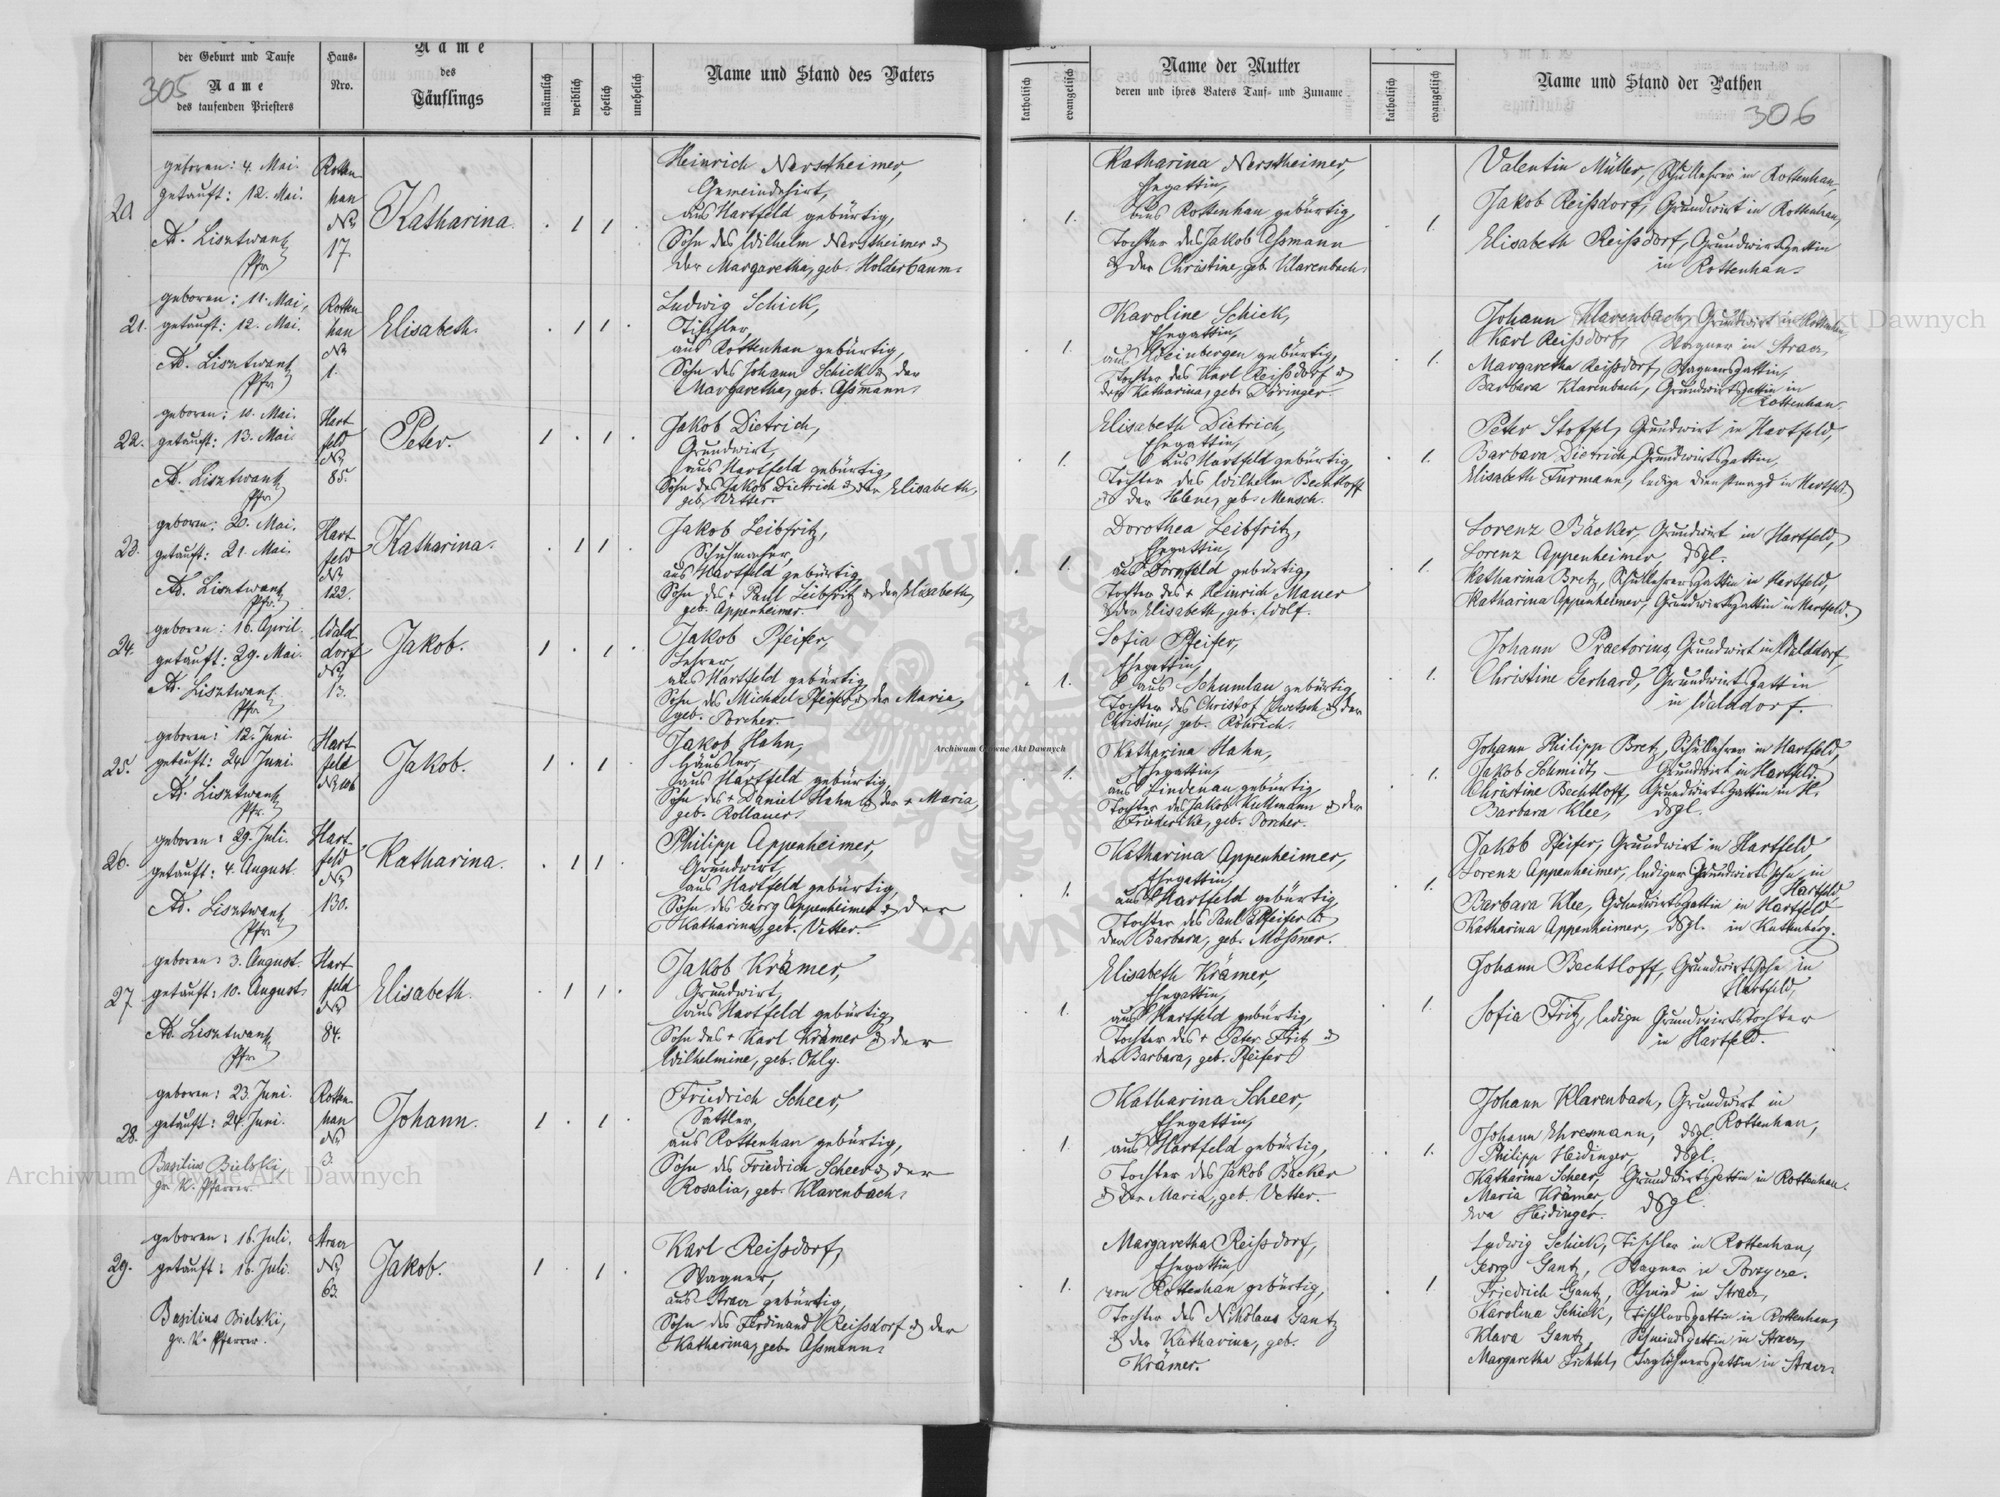 305
der Geburt und Taufe
Name
des taufenden Priesters
Haus-
Nro.
Name
des
Täuflings
männlich
weiblich
ehelich
unehelich
Name und Stand des Vaters
katholisch
evangelisch
Name der Mutter
deren und ihres Vaters Tauf- und Zuname
katholisch
evangelisch
Name und Stand der Pathen
306
geboren: 4. Mai.
getauft: 12. Mai.
Ad. Lisztwank
Pfr.
Rotten
han
No
17.
Katharina.
Heinrich Nerstheimer,
Gemeindehirt,
aus Hartfeld gebürtig,
Sohn des Wilhelm Nerstheimer &
der Margaretha, geb. Holderbaum.
Katharina Nerstheimer,
Ehegattin,
aus Rottenhan gebürtig,
Tochter des Jakob Aßmann
& der Christine, geb. Klarenbach.
Valentin Müller, Schullehrer in Rottenhan,
Jakob Reißdorf, Grundwirt in Rottenhan,
Elisabeth Reißdorf, Grundwirtsgattin
in Rottenhan.
21.
geboren: 11. Mai,
getauft: 12. Mai.
Ad. Lisztwank
Pfr.
Rotten
han
No
1.
Elisabeth.
Ludwig Schick,
Tischler,
aus Rottenhan gebürtig,
Sohn des Johann Schick & der
Margaretha, geb. Aßmann.
Karoline Schick,
Ehegattin,
aus Weinbergen gebürtig,
Tochter des Karl Reißdorf &
der Katharina, geb. Döringer.
Johann Klarenbach, Grundwirt in Rottenhan,
Karl Reißdorf, Wagner in Stracz,
Margaretha Reißdorf, Wagnersgattin,
Barbara Klarenbach, Grundwirtsgattin in
Rottenhan.
22.
geboren: 10. Mai.
getauft: 13. Mai
Ad. Lisztwank
Pfr.
Hart
feld
No
85.
Peter.
Jakob Dietrich,
Grundwirt,
aus Hartfeld gebürtig,
Sohn des Jakob Dietrich & der Elisabeth,
geb. Vetter.
Elisabeth Dietrich,
Ehegattin,
aus Hartfeld gebürtig,
Tochter des Wilhelm Bechtloff
& der Helene, geb. Mensch.
Peter Stoffel, Grundwirt in Hartfeld,
Barbara Dietrich, Grundwirtsgattin,
Elisabeth Furmann, ledige Dienstmagd in Hartfeld
23.
geboren: 20. Mai.
getauft: 21. Mai.
Ad. Lisztwank
Pfr.
Hart
feld
No
122.
Katharina.
Jakob Leibfritz,
Schuhmacher,
aus Hartfeld gebürtig,
Sohn des + Paul Leibfritz & der Elisabeth,
geb. Appenheimer.
Dorothea Leibfritz,
Ehegattin,
aus Dornfeld gebürtig,
Tochter des + Heinrich Mauer
& der Elisabeth, geb. Wolf.
Lorenz Bäcker, Grundwirt in Hartfeld,
Lorenz Appenheimer, dsgl.
Katharina Bretz, Schullehrersgattin in Hartfeld,
Katharina Appenheimer, Grundwirtsgattin in Hartfeld.
24.
geboren: 16. April.
getauft: 29. Mai.
Ad. Lisztwank
Pfr.
Wald
dorf
No
13.
Jakob.
Jakob Pfeifer,
Lehrer,
aus Hartfeld gebürtig,
Sohn des Michael Pfeifer & der Maria,
geb. Porcher.
Sofia Pfeifer,
Ehegattin,
aus Schumlau gebürtig,
Tochter des Christof & der
Christine, geb. Röhrich.
Johann Praetorius, Grundwirt in Walddorf,
Christine Gerhard, Grundwirtsgattin
in Walddorf.
25.
geboren: 12. Juni
getauft: 24. Juni.
Ad. Lisztwank
Pfr.
Hart
feld
No 106
Jakob.
Jakob Hahn,
Häusler,
aus Hartfeld gebürtig,
Sohn des + Daniel Hahn & der + Maria,
geb. Rollauer.
Katharina Hahn,
Ehegattin,
aus Lindenau gebürtig
Tochter des Jakob Kuttmann & der
Friedericke, geb. Porcher.
Johann Philipp Bretz, Schullehrer in Hartfeld,
Jakob Schmidt, Grundwirt in Hartfeld.
Christine Bechtloff, Grundwirtsgattin in H.
Barbara Klee, dsgl.
26.
geboren: 29. Juli.
getauft: 4. August.
Ad. Lisztwank
Pfr.
Hart-
feld
No
130.
Katharina.
Philipp Appenheimer,
Grundwirt,
aus Hartfeld gebürtig,
Sohn des Georg Appenheimer & der
Katharina, geb. Vetter.
Katharina Appenheimer,
Ehegattin,
aus Hartfeld gebürtig,
Tochter des Paul Pfeifer &
der Barbara, geb. Mößner.
Jakob Pfeifer, Grundwirt in Hartfeld,
Lorenz Appenheimer, lediger Grundwirtssohn, in
Hartfeld
Barbara Klee, Grundwirtsgattin in Hartfeld
Katharina Appenheimer, dsgl. in Kuttenberg.
27
geboren: 3. August.
getauft: 10. August
Ad. Lisztwank
Pfr.
Hart
feld
No
84.
Elisabeth.
Jakob Krämer,
Grundwirt,
aus Hartfeld gebürtig,
Sohn des + Karl Krämer & der
Wilhelmine, geb. Ohly.
Elisabeth Krämer,
Ehegattin,
aus Hartfeld gebürtig,
Tochter des + Peter Fritz &
der Barbara, geb. Pfeifer
Johann Bechtloff, Grundwirtssohn in
Hartfeld,
Sofia Fritz, ledige Grundwirtstochter
in Hartfeld.
28.
geboren: 23. Juni.
getauft: 24. Juni.
Basilius Bielski,
gr. k. Pfarrer.
Rotten
han
No
3.
Johann.
Friedrich Scheer,
Sattler,
aus Rottenhan gebürtig,
Sohn des Friedrich Scheer & der
Rosalia, geb. Klarenbach.
Katharina Scheer,
Ehegattin,
aus Hartfeld gebürtig,
Tochter des Jakob Bäcker
& der Maria, geb. Vetter.
Johann Klarenbach, Grundwirt in
Rottenhan,
Johann Ehresmann, dsgl.
Philipp Heidinger, dsgl.
Katharina Scheer, Grundwirtsgattin in Rottenhan.
Maria Krämer, dsgl.
Eva Heidinger.
29.
geboren: 16. Juli.
getauft: 16. Juli.
Basilius Bielski,
gr. k. Pfarrer.
Stracz
No
63.
Jakob.
Karl Reißdorf,
Wagner,
aus Stracz gebürtig,
Sohn des Ferdinand Reißdorf & der
Katharina, geb. Aßmann.
Margaretha Reißdorf,
Ehegattin
von Rottenhan gebürtig,
Tochter des Nikolaus Gantz
& der Katharina, geb.
Krämer.
Ludwig Schick, Tischler in Rottenhan,
Georg Gantz, Wagner in Porzycze.
Friedrich Gantz, Schmid in Stracz,
Karolina Schick, Tischlersgattin in Rottenhan,
Klara Gantz, Schmidsgattin in Stracz,
Margaretha Fichtel, Taglöhnersgattin in Stracz.
Archiwum Główne Akt Dawnych
Archiwum Główne Akt Dawnych
Archiwum Główne Akt Dawnych